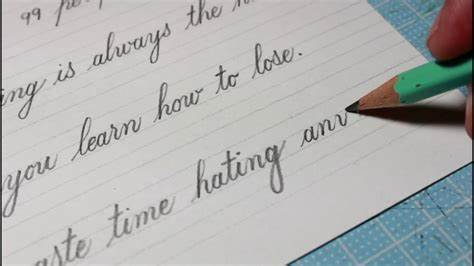 99 pe
ing is always the
you learn how to lose.
aste time hating an